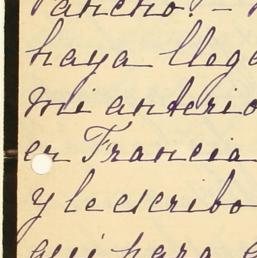 Pancho: -
haya llega
mi anterio
en Francia
y le escribo
aquí para